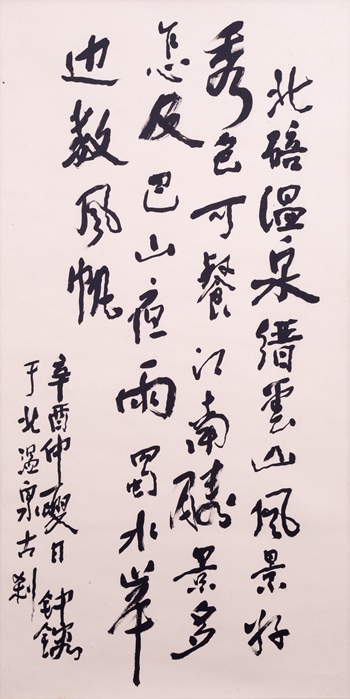 北碚温泉缙云山风景好
秀色可餐江南勝景多
怎及巴山夜雨蜀水岸
边数风帆
辛酉仲夏日
于北温泉古刹